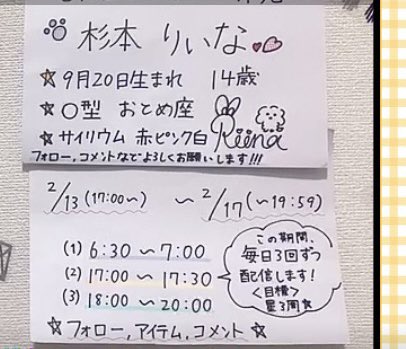 杉本 りいな
☆9月20日生まれ 14歳
★○型 おとめ座
★サイリウム 赤ピンク白
Riina
フォロー,コメントなどよろしくお願いします!!!
2/13(17:00〜) 〜 2/17(〜19:59)
(1) 6:30〜7:00
(2) 17:00〜17:30
(3) 18:00〜20:00
この期間、
毎日3回ずつ
配信します!
<目標>
星3周☆
☆フォロー,アイテム,コメント☆